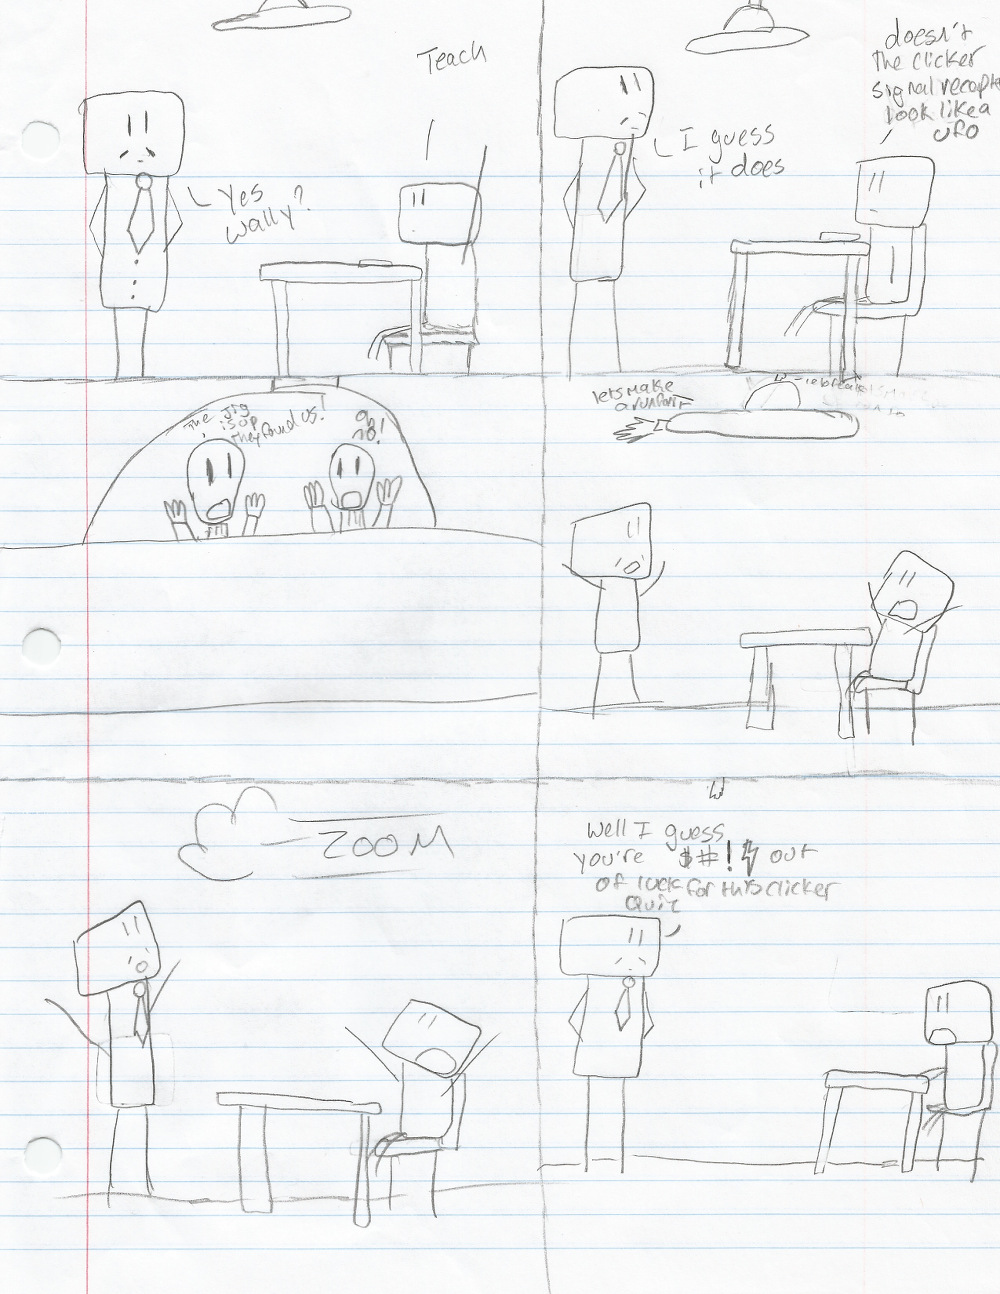 Teach
Yes
Wally?
doesn't
the clicker
signal
look like a
UFO
I guess
it does
The Jig
is up
they found us!
oh
no!
lets make
a run for it
ZOOM
Well I guess
you're $#! out
of luck for this clicker
Quiz